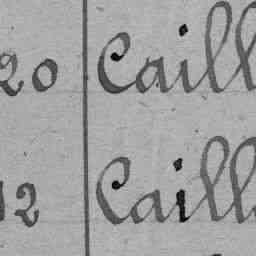 20 Caill
12 Caill